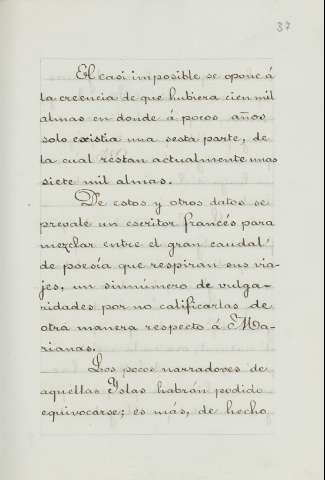 37
El casi imposible se opone á
la creencia de que hubiera cien mil
almas en donde á pocos años
solo existia una sesta parte, de
la cual restan actualmente unas
siete mil almas.
De estos y otros datos se
prevale un escritor francés para
mezclar entre el gran caudal
de poesía que respiran sus via-
jes, un sinnúmero de vulga-
ridades por no calificarlas de
otra manera respecto á Ma-
rianas.
Los pocos narradores de
aquellas Islas habrán podido
equivocarse; es más, de hecho